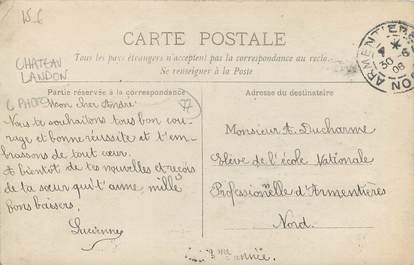 15 €
CARTE POSTALE
Tous les pays étrangers n'acceptent pas la correspondance au recto
Se renseigner à la Poste
CHATEAU
LANDON
Partie réservée à la correspondance
Adresse du destinataire
ARMENTIÈRES
30
08
NORD
77
Mon cher André
Nous te souhaitons tous bon cou-
rage et bonne réussite et t'em-
brassons de tout cœur.
A bientôt de tes nouvelles et reçois
de ta sœur qui t'aime, mille
bons baisers.
Lucienne
Monsieur A. Ducharme
Elève de l'école Nationale
Professionnelle d'Armentières
Nord.
année.